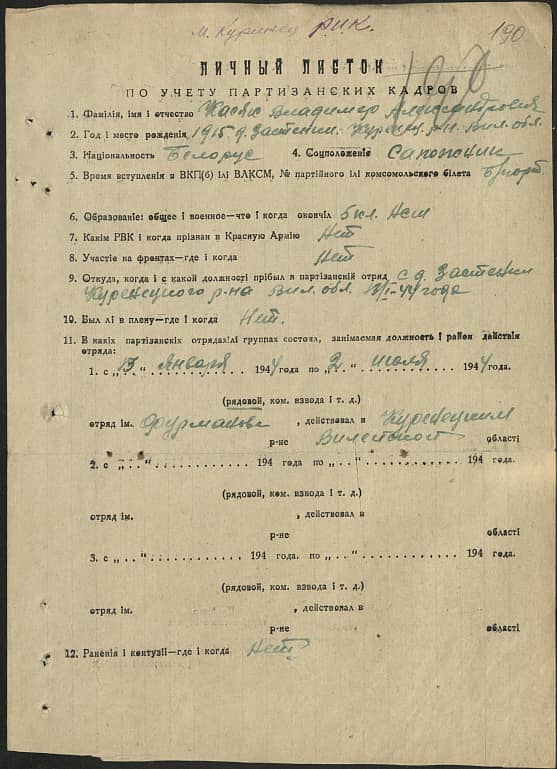 м. Куринец Р.И.К. 190
ЛИЧНЫЙ ЛИСТОК
ПО УЧЕТУ ПАРТИЗАНСКИХ КАДРОВ
1. Фамілія, імя і отчество Касяк Владимир Александрович
2. Год і место рождения 1915 д. Застенки. Куренец. р-н. Вил. обл.
3. Національность Белорус 4. Соцположеніе Сапожник
5. Время вступленія в ВКП(б) ілі ВЛКСМ, № партійного ілі комсомольского білета Б/парт
6. Образование: общее і военное—что і когда окончіл 5 кл. Нет
7. Какім РВК і когда прізван в Красную Армію Нет
8. Участіе на фронтах—где і когда Нет
9. Откуда, когда і с какой должності прібыл в партізанскій отряд с д. Застенки
Куренецкого р-на Вил. обл. 13/I-44 года
10. Был лі в плену—где і когда Нет.
11. В какіх партізанскіх отрядах ілі группах состоял, занімаемая должность і район действія
отряда:
1. с „ 13 “ Января 1944 года по „ 2 “ июля 1944 года.
(рядовой, ком. взвода і т. д.)
отряд ім. Фурманова , действовал в Куренецким
р-не Вилейской області
2. с „ . . “ . . . . . . . . . . 194 года по „ . . “ . . . . . . . . . . 194 года.
(рядовой, ком. взвода і т. д.)
отряд ім. , действовал в
р-не області
3. с „ . . “ . . . . . . . . . . 194 года. по „ . . “ . . . . . . . . . . 194 года.
(рядовой, ком. взвода і т. д.)
отряд ім. , действовал в
р-не області
12. Раненія і контузіі—где і когда Нет